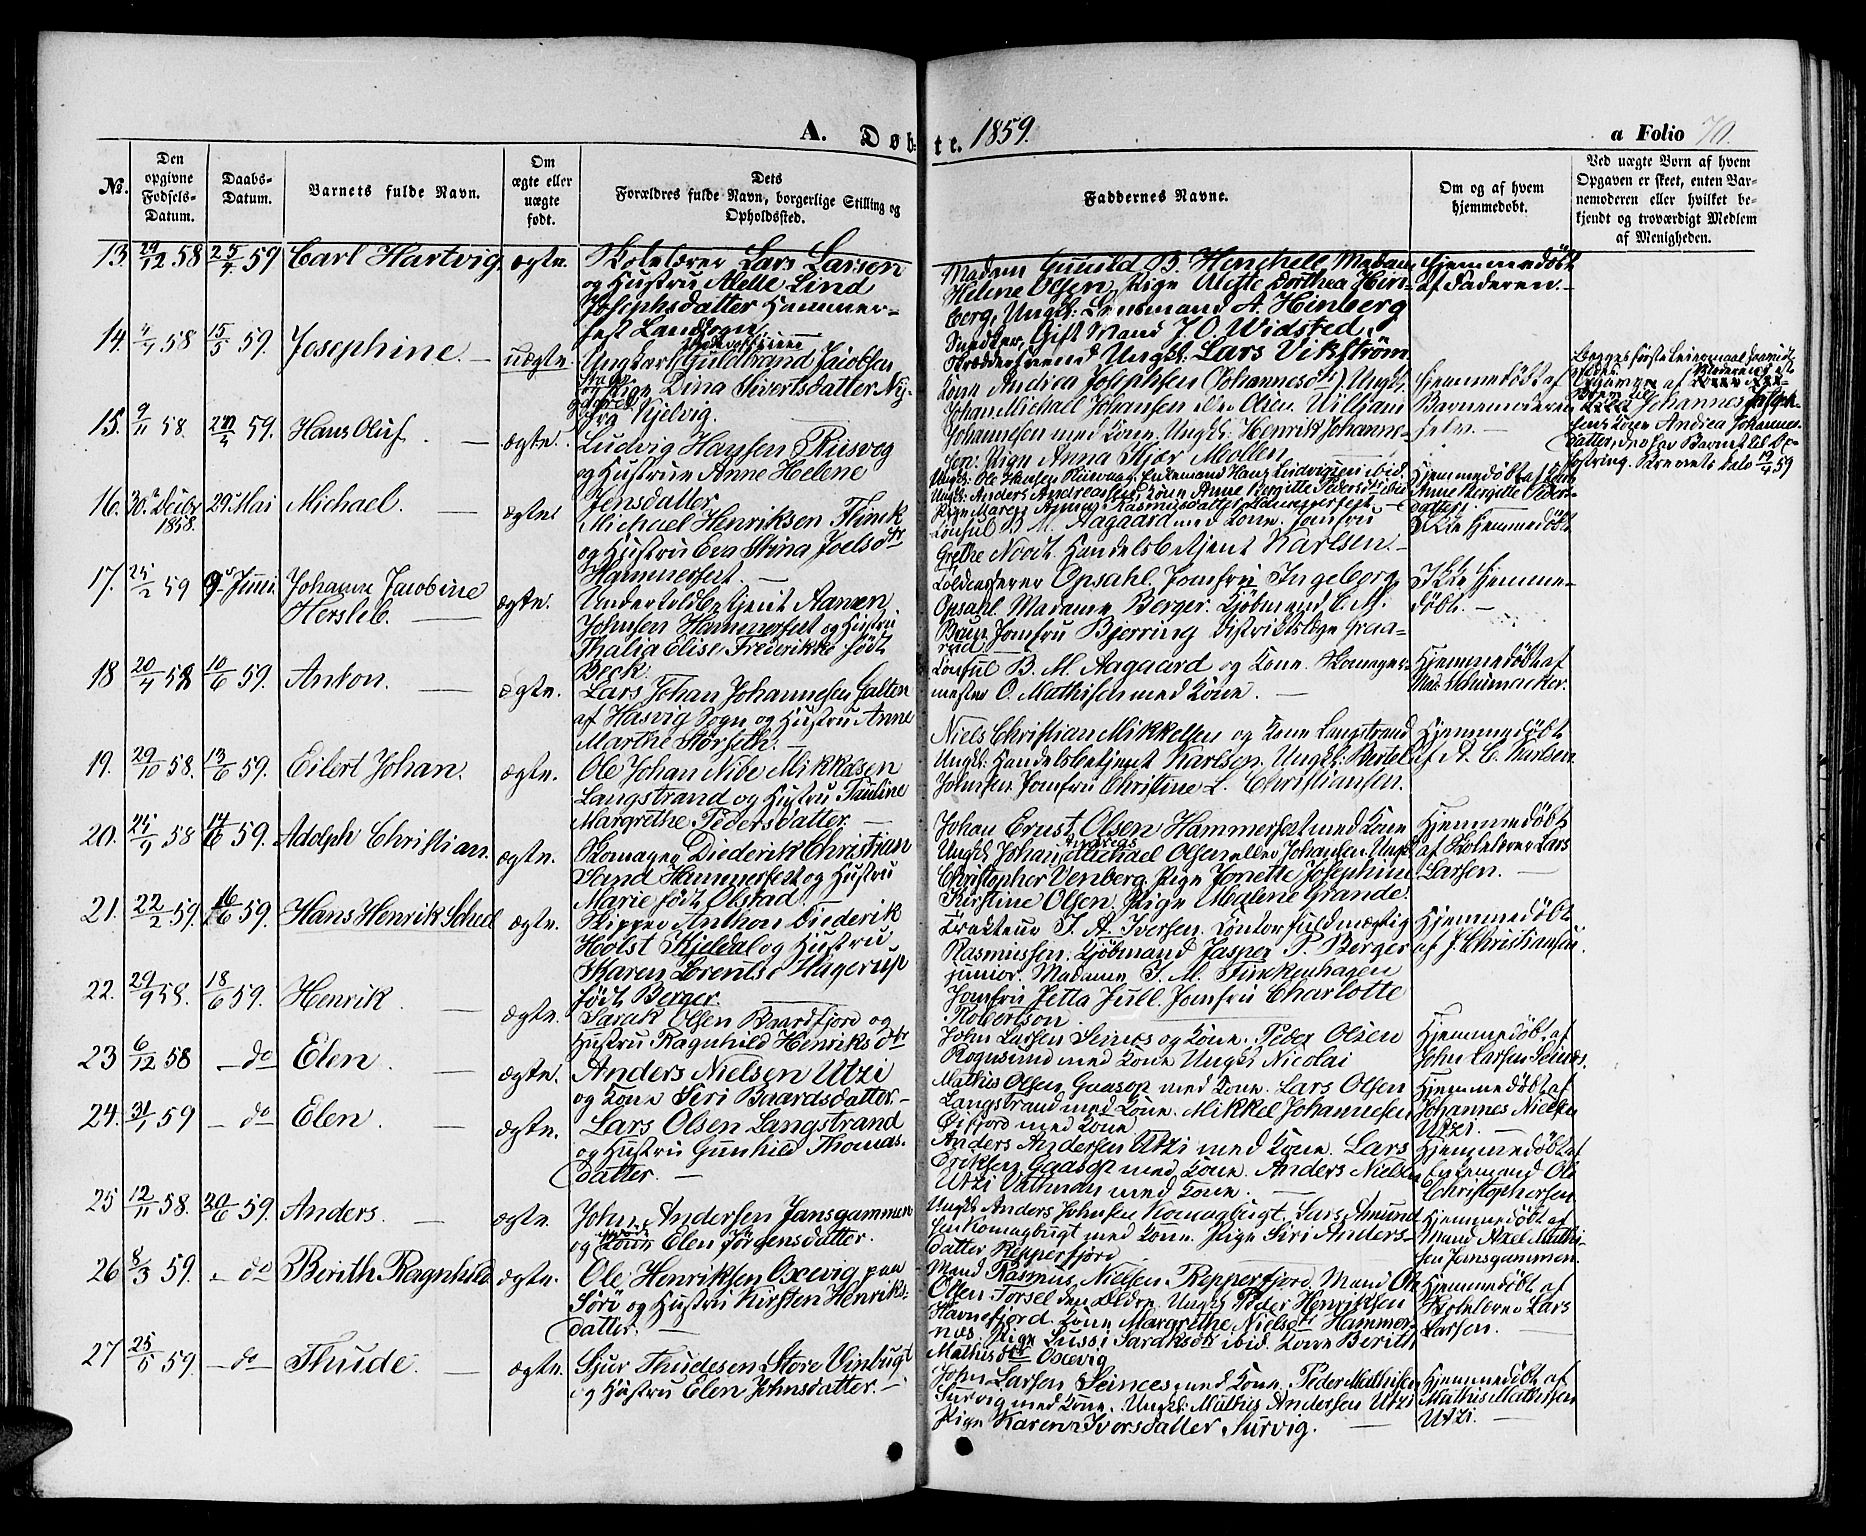 A. Døbte. 1859.
a Folio 70.
No.
Den opgivne Fødsels-Datum.
Daabs-Datum.
Barnets fulde Navn.
Om ægte eller uægte født.
Dets Forældres fulde Navn, borgerlige Stilling og Opholdssted.
Faddernes Navne.
Om og af hvem hjemmedøbt.
Ved uægte Børn af hvem
Opgaven er skeet, enten Bar-
nemoderen eller hvilket be-
kjendt og troværdigt Medlem
af Menigheden.
13. 29/12 58 25/4 59 Carl Hartvig ægte.
Skolelærer Lars Larsen
og Hustru Alette Lind
Josephsdatter Hammer-
fest Landsogn
Madam B. Henckell Madam
Helene Olsen, Pige Dorthea Hin-
berg, Ungk: Lensmand A. Hinberg
Gift Mand J. O. Widsted.
Ungk: Lars Vikström
Hjemmedøbt
af Faderen.
14. 58 15/5 59. Josephine. uægte.
Ungkarl Guldbrand Jacobsen
Pige Dina Sivertsdatter
Kjelvig.
Kone Andrea Josephsen Ungk.
Johan Michael Johansen eller Olsen. William
Johannesen med Kone. Ungk. Henrik Johanne-
sen. Pige Anna Skjær Mollen
Hjemmedøbt af
Barnemoderen
selv.
Begges første Leiermaal
Johannes Joseph-
sens Kone Andrea Johannes-
datter, der har Barnet til Op-
fostring.
15. 9/11 58. 59. Hans Oluf. ægte.
Ludvig Hansen
og Hustru Anne Helene
Jensdatter
Ungk: Ole Hansen Enkemand Hans Ludvigsen ibid
Ungk: Anders Andreassen, Kone Anne Bergitte
Hjemmedøbt af
Anne Bergitte Peder-
datter.
16. 30. Decbr 1858. 29. Mai Michael. ægte
Michael Henriksen
og Hustru Eva Stina Joelsdtr
Hammerfest.
Consul B. M. Aagaard med Kone. Jomfru
Grethe Noodt. Handelsbetjent Karlsen.
Ikke Hjemmedøbt
17. 25/2 59 9. Juni. Johanne Jacobine
Hersleb. ægte.
Undertoldbetjent Aanen
Johnsen Hammerfest og Hustru
Thalia Elise Frederikke født
Beck.
Toldkasserer Opsahl. Jomfru Ingeborg
Opsahl. Madame Berger. Kjøbmand C. M.
Jomfru Bjerring Distriktslæge Graa-
rud
Ikke Hjemme-
døbt.
18 20/4 58 10/6 59. Anton. ægte.
Lars Johan Johannesen Galten
af Hasvig Sogn og Hustru Anne
Marthe Størseth.
Consul B. M. Aagaard og Kone. Skomager-
mester O. Mathisen med Kone.
Hjemmedøbt af
Mad: Schumacker.
19. 29/10 58. 13/6 59. Eilert Johan. ægte.
Ole Johan Nibe Mikkelsen
Langstrand og Hustru Pauline
Margrethe Pedersdatter.
Niels Christian Mikkelsen og Kone Langstrand
Ungk: Handelsbetjent Karlsen. Ungk: Bertel
Johnsen Jomfru Christine L. Christiansen.
Hjemmedøbt
af A. C. Karlsen
20. 58 14/6 59. Adolph Christian. ægte.
Skomager Diederik Christian
Sand Hammerfest og Hustru
Marie født Olstad
Johan Ernst Olsen Hammerfest med Kone
Ungk Johan Andreas Michael Olsen eller Johansen. Ungk
Christopher Venberg. Pige Jonette Josephine
Kirstine Olsen. Pige Malene Grande.
Hjemmedøbt
af Skolelærer Lars
Larsen.
21. 22/2 59. 16/6 59. Hans Henrik Scheel ægte.
Skipper Anthon Diederik
Holst Kjeldal og Hustru
Maren Lorentse Hagerup
født Berger.
Tracteur J. A. Iversen. Contorfuldmægtig
Rasmussen. Kjøbmand Jasper P. Berger
junior. Madame J. M. Finkenhagen
Jomfru Petta Jull. Jomfru Charlotte
Robertson
Hjemmedøbt
af J. Christiansen.
22. 29/9 58. 18/6 59. Henrik. ægte.
Sarak Olsen Baardfjord og
Hustru Ragnhild Henriksdtr
John Larsen Seines og Kone. Peder Olsen
Rognsund med Kone Ungk Nicolai
Hjemmedøbt af
John Larsen Seines.
23 6/12 58 do Elen. ægte.
Anders Nielsen Utzi
og Kone Siri Baardsdatter.
Mathis Olsen Gaasop med Kone. Lars Olsen
Langstrand med Kone. Mikkel Johannesen
med Kone
Hjemmedøbt af
Johannes Nielsen
Utzi.
24. 31/1 59 do Elen. ægte.
Lars Olsen Langstrand
og Hustru Gunhild Thomas-
datter.
Anders Andersen Utzi med Kone. Lars
Eriksen Gaasop med Kone. Anders Nielsen
Utzi med Kone.
Hjemmedøbt af
Enkemand Ole
Christophersen
25 12/11 58. 20/6 59. Anders. ægte.
John Andersen Jansgammen
og Elen Jørgensdatter.
Ungk Anders Johnsen Komagbugt. Amund
sen Komagbugt med Kone. Pige Siri Anders-
datter Repperfjord
Hjemmedøbt af
Mand Axel Mathi-
sen Jansgammen.
26 8/3 59. do Berith Ragnhild ægte.
Ole Henriksen Oxevig paa
Sörö og Hustru Kirsten Henriks-
datter.
Mand Rasmus Nielsen Repperfjord, Mand Ole
Olsen Torsel den Eldre. Ungk Peder Henriksen
Kone Margrethe Nielsdtr Hammer-
nes. Pige Sussi Saraksdtr ibid. Kone Berith
Mathisdtr Oxevig
Hjemmedøbt af
Skolelærer Lars
Larsen.
27 25/5 59. do Thude. ægte.
Sjur Thudesen Store Vinbugt
og Hustru Elen Johnsdatter.
John Larsen Seines med Kone. Peder Mathisen
Survig med Kone. Ungk: Mathis Andersen Utzi
Pige Karen Iversdatter Survig.
Hjemmedøbt af
Mathis Mathisen
Utzi.